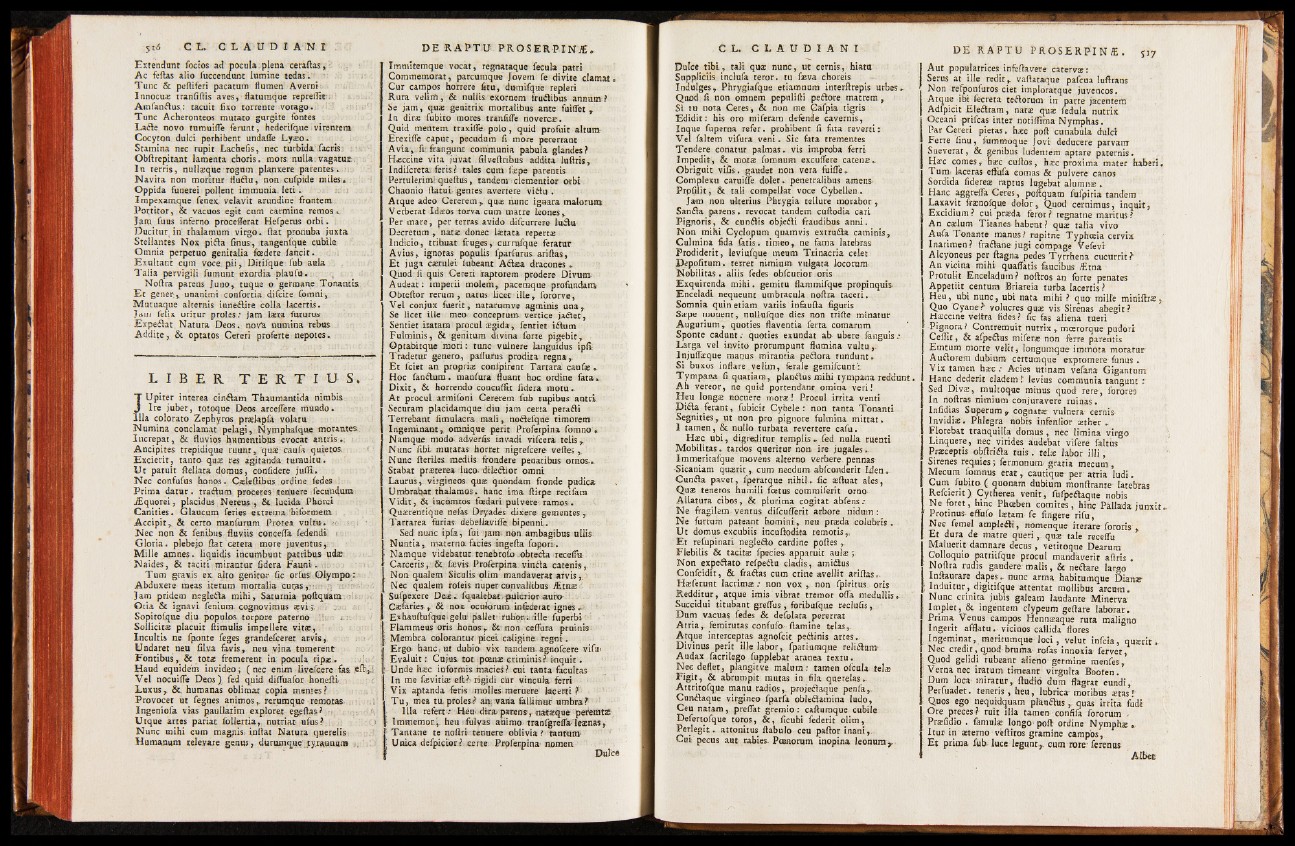 516 CL. CLAUDIANI
Extendunt socios ad pocula plena cerastas,
Ac festas alio succendunt lumine tedas.
Tunc & pestiferi pacatum flumen Averni
Innocuæ transistis aves, flatumque repressit
Amsanctus: tacuit fixo torrente vorago.
Tunc Acheronteos mutato gurgite fontes
Lacte novo tumuisse ferunt, hederisque virentem
Cocyton dulci perhibent undasse Lyæo.
Stamina nec rupit Lachesis, nec turbida sacris
Obstrepitant lamenta choris. mors nulla vagatur
In terris, nullæque rogum planxere parentes.
Navita non moritur fluctu, non cuspide miles.
Oppida funerei pollent immunia leti.
Impexamque senex velavit arundine frontem
Portitor, & vacuos egit cum carmine remos.
Jam suus inferno processerat Hesperus orbi.
Ducitur in thalamum virgo. stat pronuba juxta
Stellantes Nox picta sinus, tangensque cubile
Omnia perpetuo genitalia fœdere sancit.
Exultant cum voce pii, Ditisque sub aula
Talia pervigili sumunt exordia plausu.
Nostra parens Juno, tuque o germane Tonantis
Et gener, unanimi consortia discite somni,
Mutuaque alternis innectite colla lacertis.
Jam felix oritur proles: jam læta futuros
Expectat Natura Deos. nova numina rebus
Addite, & optatos Cereri proferte nepotes.
LIBER TERTIUS.
JUpiter interea cinctam Thaumantida nimbis
Ire jubet, totoque Deos arcessere mundo.
Illa colorato Zephyros prælapsa volatu
Numina conclamat pelagi, Nymphasque morantes
Increpat, & fluvios humentibus evocat antris.
Ancipites trepidique ruunt, quæ causa quietos
Excierit, tanto quæ res agitanda tumultu.
Ut patuit stellata domus, considere jussi.
Nec confusus honos. Cœlestibus ordine sedes
Prima datur. tractum proceres tenuere secundum
Æquorei, placidus Nereus, & lucida Phorci
Canities. Glaucum series extrema biformem
Accipit, & certo mansurum Protea vultu.
Nec non & senibus fluviis concessa sedendi
Gloria. plebejo stat cetera more juventus,
Mille amnes. liquidis incumbunt patribus udæ
Naides, & taciti mirantur sidera Fauni.
Tum gravis ex alto genitor sic orsus Olympo:
Abduxere meas iterum mortalia curas,
Jam pridem neglecta mihi, Saturnia postquam
Otia & ignavi senium cognovimus ævi;
Sopitosque diu populos torpore paterno
Sollicitæ placuit stimulis impellere vitæ,
Incultis ne sponte seges grandesceret arvis,
Undaret neu silva favis, neu vina tumerent
Fontibus, & totæ fremerent in pocula ripæ.
Haud equidem invideo; (nec enim livescere fas est,
Vel nocuisse Deos) sed quid dissuasor honesti
Luxus, & humanas oblimat copia mentes?
Provocet ut segnes animos, rerumque remotas
Ingeniosa vias paullatim exploret egestas?
Utque artes pariat sollertia, nutriat usus?
Nunc mihi cum magnis instat Natura querelis
Humanum relevare genus, durumque tyrannum
DE RAPTU PROSERPINÆ.
Immitemque vocat, regnataque secula patri
Commemorat, parcumque Jovem se divite clamat.
Cur campos horrere situ, dumisque repleri
Rura velim, & nullis exornem fructibus annum?
Se jam, quæ genitrix mortalibus ante fuisset,
In diræ subito mores transisse novercæ.
Quid mentem traxisse polo, quid profuit altum
Erexisse caput, pecudum si more pererrant
Avia, si frangunt communia pabula glandes?
Hæccine vita juvat silvestribus addita lustris,
Indiscreta feris? tales cum sæpe parentis
Pertulerim questus, tandem clementior orbi
Chaonio statui gentes avertere victu.
Atque adeo Cererem, quæ nunc ignara malorum
Verberat Idæos torva cum matre leones,
Per mare, per terras avido discurrere luctu
Decretum, natæ donec lætata repertæ
Indicio, tribuat fruges, currusque feratur
Avius, ignotas populis sparsurus aristas,
Et juga cærulei subeant Actæa dracones.
Quod si quis Cereri raptorem prodere Divum
Audeat: imperii molem, pacemque profundam
Obtestor rerum, natus licet ille, sororve,
Vel conjux fuerit, natarumve agminis una,
Se licet ille meo conceptum vertice jactet,
Sentiet iratam procul ægida, sentiet ictum
Fulminis, & genitum divina sorte pigebit,
Optabitque mori: tunc vulnere languidus ipsi
Tradetur genero, passurus prodita regna,
Et sciet an propriæ conspirent Tartara causæ.
Hoc sanctum. mansura fluant hoc ordine fata.
Dixit, & horrendo concussit sidera motu.
At procul armisoni Cererem sub rupibus antri
Securam placidamque diu jam certa peracti
Terrebant simulacra mali, noctesque timorem
Ingeminant, omnique perit Proserpina somno.
Namque modo adversis invadi viscera telis,
Nunc sibi mutatas horret nigrescere vestes,
Nunc steriles mediis frondere penatibus ornos.
Stabat præterea luco dilectior omni
Laurus, virgineos quæ quondam fronde pudica
Umbrabat thalamos. hanc ima stirpe recisam
Vidit, & incomtos fœdari pulvere ramos.
Quærentique nefas Dryades dixere gementes,
Tartarea furias debellavisse bipenni.
Sed nunc ipsa, sui jam non ambagibus ullis
Nuntia, materno facies ingesta sopori.
Namque videbatur tenebroso obtecta recessu
Carceris, & sævis Proserpina vincta catenis,
Non qualem Siculis olim mandaverat arvis,
Nec qualem roseis nuper convallibus Ætnæ
Suspexere Deæ. squalebat pulcrior auro
Cæsaries, & nox oculorum infecerat ignes.
Exhaustusque gelu pallet rubor. ille superbi
Flammeus oris honos, & non cessura pruinis
Membra colorantur picei caligine regni.
Ergo hanc ut dubio vix tandem agnoscere visu
Evaluit: Cujus tot pœnæ criminis? inquit.
Unde hæc informis macies? cui tanta facultas
In me sævitiæ est? rigidi cur vincula ferri
Vix aptanda feris molles meruere lacerti?
Tu, mea tu proles? an vana fallimur umbra?
Illa refert: Heu dira parens, natæque peremtæ
Immemor, heu fulvas animo transgressa leænas,
Tantane te nostri tenuere oblivia? tantum
Unica despicior? certe Proserpina nomen
Dulce
CL. CLAUDIANI
Dulce tibi, tali quæ nunc, ut cernis, hiatu
Suppliciis inclusa teror. tu sæva choreis
Indulges, Phrygiasque etiamnum interstrepis urbes.
Quod si non omnem pepulisti pectore matrem,
Si tu nota Ceres, & non me Caspia tigris
Edidit: his oro miseram defende cavernis,
Inque superna refer. prohibent si fata reverti:
Vel saltem visura veni. Sic fata trementes
Tendere conatur palmas. vis improba ferri
Impedit, & motæ somnum excussere catenæ.
Obriguit visis. gaudet non vera fuisse.
Complexu caruisse dolet. penetralibus amens
Prosilit, & tali compellat voce Cybellen.
Jam non ulterius Phrygia tellure morabor,
Sancta parens. revocat tandem custodia cari
Pignoris, & cunctis objecti fraudibus anni.
Non mihi Cyclopum quamvis extructa caminis,
Culmina fida satis. timeo, ne fama latebras
Prodiderit, leviusque meum Trinacria celet
Depositum. terret nimium vulgata locorum
Nobilitas. aliis sedes obscurior oris
Exquirenda mihi. gemitu flammisque propinquis
Enceladi nequeunt umbracula nostra taceri.
Somnia quin etiam variis infausta figuris
Sæpe monent, nullusque dies non triste minatur
Augurium, quoties flaventia serta comarum
Sponte cadunt: quoties exundat ab ubere sanguis:
Larga vel invito prorumpunt flumina vultu,
Injussæque manus mirantia pectora tundunt.
Si buxos inflare velim, ferale gemiscunt:
Tympana si quatiam, planctus mihi tympana reddunt.
Ah vereor, ne quid portendant omina veri!
Heu longæ nocuere moræ! Procul irrita venti
Dicta ferant, subicit Cybele: non tanta Tonanti
Segnities, ut non pro pignore fulmina mittat.
I tamen, & nullo turbata revertere casu.
Hæc ubi, digreditur templis. sed nulla ruenti
Mobilitas. tardos queritur non ire jugales.
Immeritasque movens alterno verbere pennas
Sicaniam quærit, cum necdum absconderit Iden.
Cuncta pavet, speratque nihil. sic æstuat ales,
Quæ teneros humili fœtus commiserit orno
Allatura cibos, & plurima cogitat absens:
Ne fragilem ventus discusserit arbore nidum:
Ne furtum pateant homini, neu præda colubris.
Ut domus excubiis incustodita remotis,
Et resupinati neglecto cardine postes,
Flebilis & tacitæ species apparuit aulæ;
Non expectato respectu cladis, amictus
Conscidit, & fractas cum crine avellit aristas.
Hæserunt lacrimæ: non vox, non spiritus oris
Redditur, atque imis vibrat tremor ossa medullis.
Succidui titubant gressus, foribusque reclusis,
Dum vacuas sedes & desolata pererrat
Atria, semirutas confuso stamine telas,
Atque interceptas agnoscit pectinis artes.
Divinus perit ille labor, spatiumque relictum
Audax sacrilego supplebat aranea textu.
Nec deflet, plangitve malum: tamen oscula telæ
Figit, & abrumpit mutas in fila querelas.
Attritosque manu radios, projectaque pensa,
Cunctaque virgineo sparsa oblectamina ludo,
Ceu natam, pressat gremio: castumque cubile
Desertosque toros, &, sicubi sederit olim,
Perlegit. attonitus stabulo ceu pastor inani,
Cui pecus aut rabies Pœnorum inopina leonum,
DE RAPTU PROSERPINÆ. 517
Aut populatrices infestavere catervæ:
Serus at ille redit, vastataque pascua lustrans
Non responsuros ciet imploratque juvencos.
Atque ibi secreta tectorum in parte jacentem
Adspicit Electram, natæ quæ sedula nutrix
Oceani priscas inter notissima Nymphas.
Par Cereri pietas. hæc post cunabula dulci
Ferre sinu, summoque Jovi deducere parvam
Sueverat, & genibus ludentem aptare paternis.
Hæc comes, hæc custos, hæc proxima mater haberi.
Tum laceras effusa comas & pulvere canos
Sordida sidereæ raptus lugebat alumnæ.
Hanc aggressa Ceres, postquam suspiria tandem
Laxavit frænosque dolor, Quod cernimus, inquit,
Excidium? cui præda feror? regnatne maritus?
An cælum Titanes habent? quæ talia vivo
Ausa Tonante manus? rupitne Typhœia cervix
Inarimen? fractane jugi compage Vesevi
Alcyoneus per stagna pedes Tyrrhena cucurrit?
An vicina mihi quassatis faucibus Ætna
Protulit Enceladum? nostros an forte penates
Appetiit centum Briareia turba lacertis?
Heu, ubi nunc, ubi nata mihi? quo mille ministræ,
Quo Cyane? volucres quæ vis Sirenas abegit?
Hæccine vestra fides? sic fas aliena tueri
Pignora? Contremuit nutrix, mœrorque pudori
Cessit, & aspectus miseræ non ferre parentis
Emtum morte velit, longumque immota moratur
Auctorem dubium certumque expromere funus.
Vix tamen hæc: Acies utinam vesana Gigantum
Hanc dederit cladem! levius communia tangunt:
Sed Divæ, multoque minus quod rere, sorores
In nostras nimium conjuravere ruinas.
Insidias Superum, cognatæ vulnera cernis
Invidiæ. Phlegra nobis infensior æther.
Florebat tranquilla domus, nec limina virgo
Linquere, nec virides audebat visere saltus
Præceptis obstricta tuis. telæ labor illi,
Sirenes requies; sermonum gratia mecum,
Mecum somnus erat, cautique per atria ludi.
Cum subito (quonam dubium monstrante latebras
Rescierit) Cytherea venit, suspectaque nobis
Ne foret, hinc Phœben comites, hinc Pallada junxit.
Protinus effuso lætam se fingere risu,
Nec semel amplecti, nomenque iterare sororis,
Et dura de matre queri, quæ tale recessu
Maluerit damnare decus, vetitoque Dearum
Colloquio patriisque procul mandaverit astris.
Nostra rudis gaudere malis, & nectare largo
Instaurare dapes. nunc arma habitumque Dianæ
Induitur, digitisque attentat mollibus arcum.
Nunc crinita jubis galeam laudante Minerva
Implet, & ingentem clypeum gestare laborat.
Prima Venus campos Hennæaque rura maligno
Ingerit afflatu. vicinos callida flores
Ingeminat, meritumque loci, velut inscia, quærit.
Nec credit, quod bruma rosas innoxia servet,
Quod gelidi rubeant alieno germine menses,
Verna nec iratum timeant virgulta Booten.
Dum loca miratur, studio dum flagrat eundi,
Persuadet. teneris, heu, lubrica moribus ætas!
Quos ego nequidquam planctus, quas irrita fudi
Ore preces? ruit illa tamen confisa sororum
Præsidio. famulæ longo post ordine Nymphæ.
Itur in æterno vestitos gramine campos,
Et prima sub luce legunt, cum rore serenus
Albet